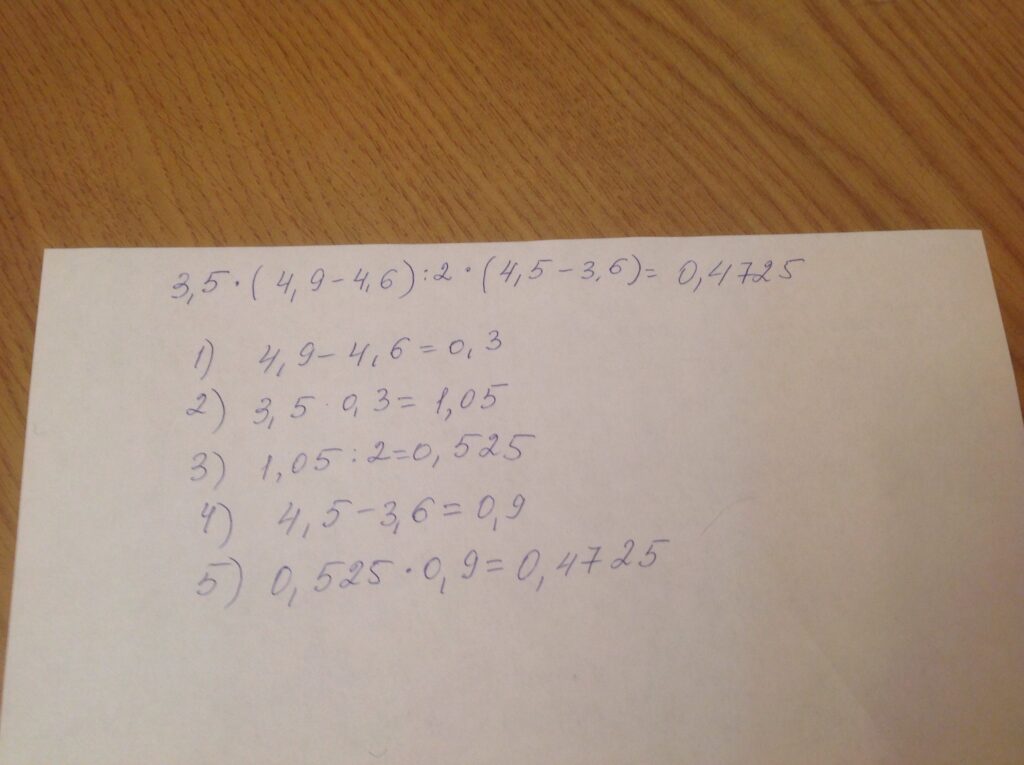 3,5·(4,9-4,6):2·(4,5-3,6)=0,4725
1) 4,9-4,6=0,3
2) 3,5·0,3=1,05
3) 1,05:2=0,525
4) 4,5-3,6=0,9
5) 0,525·0,9=0,4725